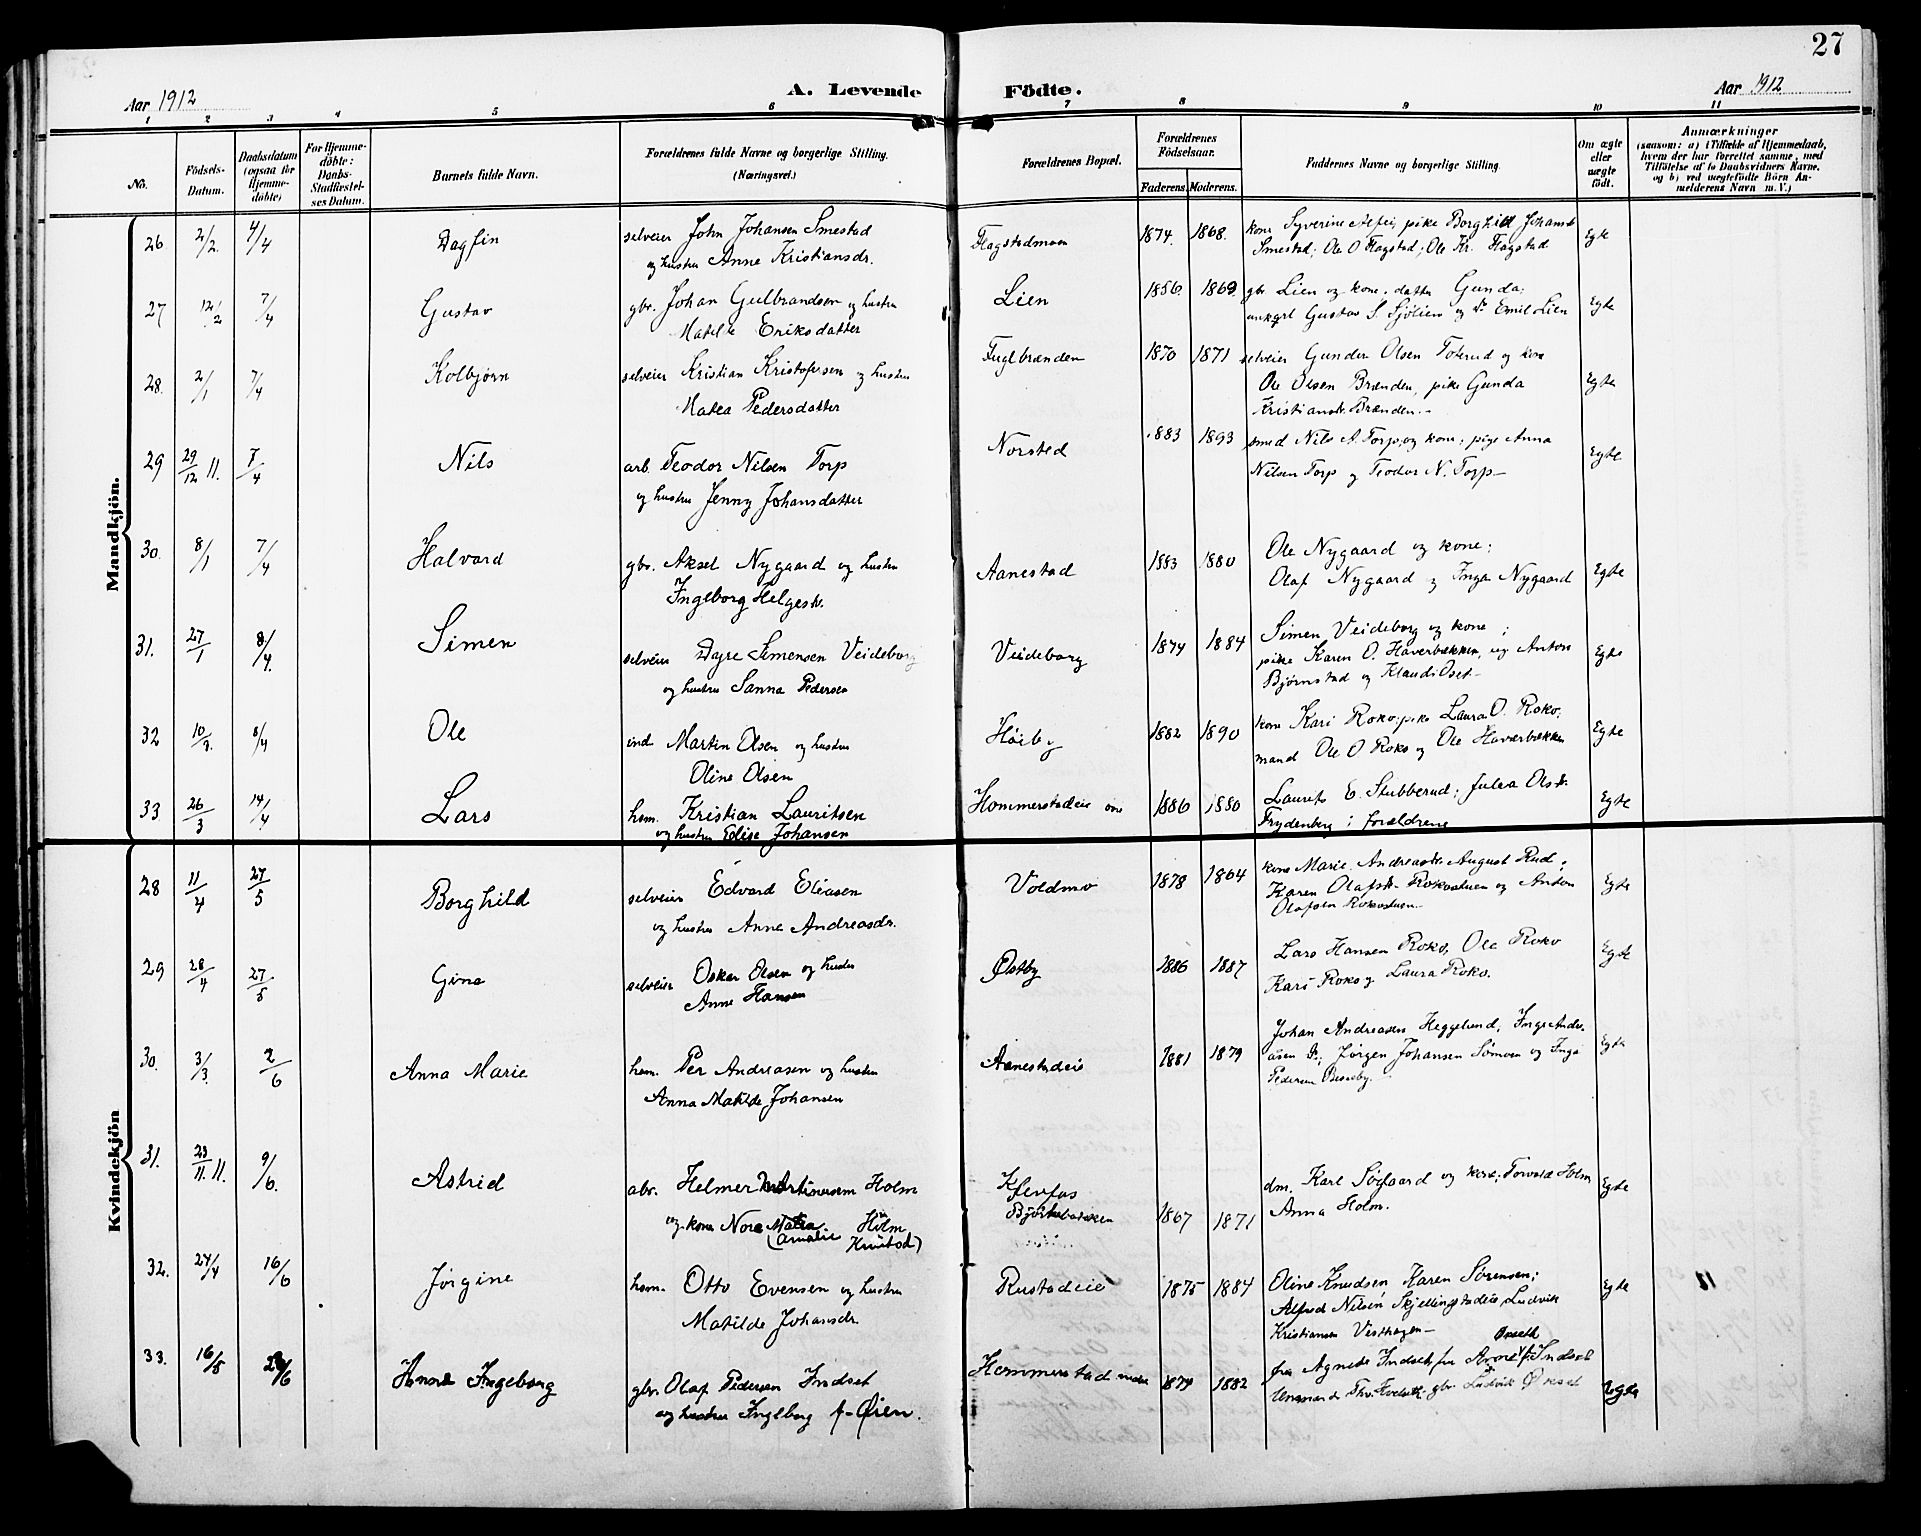 27
Aar 1912 A. Levende Födte. Aar 1912
1 2 3 4 5 6 7 8 9 10 11
No. Födsels-Datum. Daabsdatum (ogsaa for Hjemme-döbte) For Hjemme-döbte: Daabs-Stadfæstel-ses Datum. Barnets fulde Navn. Forældrenes fulde Navne og borgerlige Stilling. (Næringsvei.) Forældrenes Bopæl. Forældrenes Födselsaar. Faderens. Moderens. Faddernes Navne og borgerlige Stilling. Om ægte eller uægte födt. Anmærkninger (saasom: a) i Tilfælde af Hjemmedaab, hvem der har forrettet samme, med Tilföielse af to Daabsvidners Navne. og b) ved uægtefödte Börn An-melderens Navn m. V.)
Mandkjön.
26 2/2. 4/4 Dagfin selveier John Johansen Smestad Flagstadmoen 1874. 1868. kone Syverine Alfei, pike Borghild Johansdr Egte
og hustru Anne Kristiansdr. Smestad; Ole O Flagstad; Ole Kr. Flagstad
27 12/2 7/4 Gustav gbr. Johan Gulbrandsen og hustru Lien 1856. 1869 gbr Lien og kone. datter Gunda; Egte
Matilde Eriksdatter ungkrl Gustav S. Sjölien og Do Emil Lien
28. 2/1 7/4 Kolbjørn selveier Kristian Kristofersen og hustru Fuglbrænden 1870 1871 selveier Gunder Olsen Toterud og kone Egte
Matea Pedersdatter Ole Olsen Brænden, pike Gunda
Kristiansdr. Brænden.-
29 29/12 11. 7/4 Nils arb. Teodor Nilsen Torp Norsted 1883 1893 smed Nils A. Torp, og kone; pige Anna Egte
og hustru Jenny Johansdatter Nilsen Torp og Teodor N. Torp-
30. 8/1 7/4 Halvard gbr. Aksel Nygaard og hustru Aanestad 1883 1880 Ole Nygaard og kone; Egte
Ingeborg Helgesdr. Olaf Nygaard og Inga Nygaard
31. 27/1 8/4. Simen selveier Dyre Simensen Veideborg Veideborg 1874 1884 Simen Veideborg og kone; Egte
og hustru Sanna Pedersen pike Karen O. Haverbækken, og Anton
Bjørnstad og Klaudi Oset-
32 10/3. 8/4 Ole ind. Martin Olsen og hustru Høiby 1882 1890 kone Kari Roko; pike Laura O. Roko; Egte
Oline Olsen mand Ole O Roko og Ole Haverbækken
33 26/3 14/4 Lars hsm. Kristian Lauritsen Hommerstadeie øvre 1886 1880 Laurits E. Stubberud; Julea Olsdr. Egte
og hustru Elise Johansen Frydenberg; forældrene
Kvindekjön
28 11/4 27/5 Borghild selveier Edvard Eliasen Voldmo 1878 1864 kone Marie Andreasdr. August Rud; Egte
og hustru Anne Andreasdr. Karen Olafsdr. Rokostuen og Anton
Olafsen Rokostuen.-
29 28/4 27/5 Gina selveier Oskar Olsen og hustru Østby 1886 1887 Lars Hansen Roko, Ole Roko Egte
Anne Hansen Kari Roko og Laura Roko.
30. 3/3. 2/6 Anna Marie hsm. Per Andreasen og hustru Aanestadeie 1881 1879 Johan Andreasen Heggelund, Inge Andre- Egte
Anna Matilde Johansen asen Do; Jørgen Johansen Sømoen og Inga
Pedersen Besseby.
31. 23/11. 11. 9/6. Astrid abr. Helmer Martinusen Holm Klevfos dm. Karl Søgaard og kone; Torvald Holm Egte
og kone Nora Matea Holm Björkebakken 1867 1871 Anna Holm.
(Amalie Knutsd)
32. 24/4 16/6 Jørgine hsm. Otto Evensen og hustru Rustadeie 1875 1884 Oline Knudsen Karen Sørensen; Egte
Matilde Johansdr. Alfred Nilsen Skjellingstadeie, Ludvik
Kristiansen Vesthagen-
33. 16/5 23/6 Anne Ingeborg gbr. Olaf Pedersen Indset Hommerstad nedre 1879 1882 fru Agnete Indset, fru Arne Indset Egte
og hustru Ingeborg f. Øien. gbr. Ludvik Økset